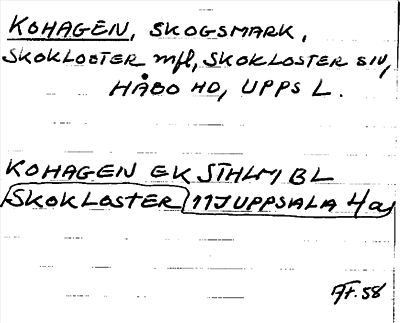 KOHAGEN, SKOGSMARK,
SKOKLOSTER mfl, SKOKLOSTER SN,
HÅBO HD, UPPS L.
KOHAGEN EK STHLM BL
SKOKLOSTER 11J UPPSALA 4a